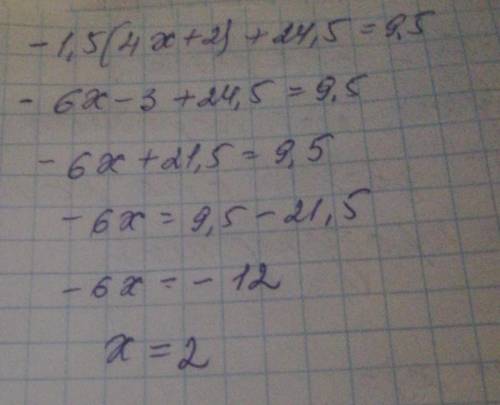 -1,5(4x+2)+24,5=9,5
-6x-3+24,5=9,5
-6x+21,5=9,5
-6x=9,5-21,5
-6x=-12
x=2